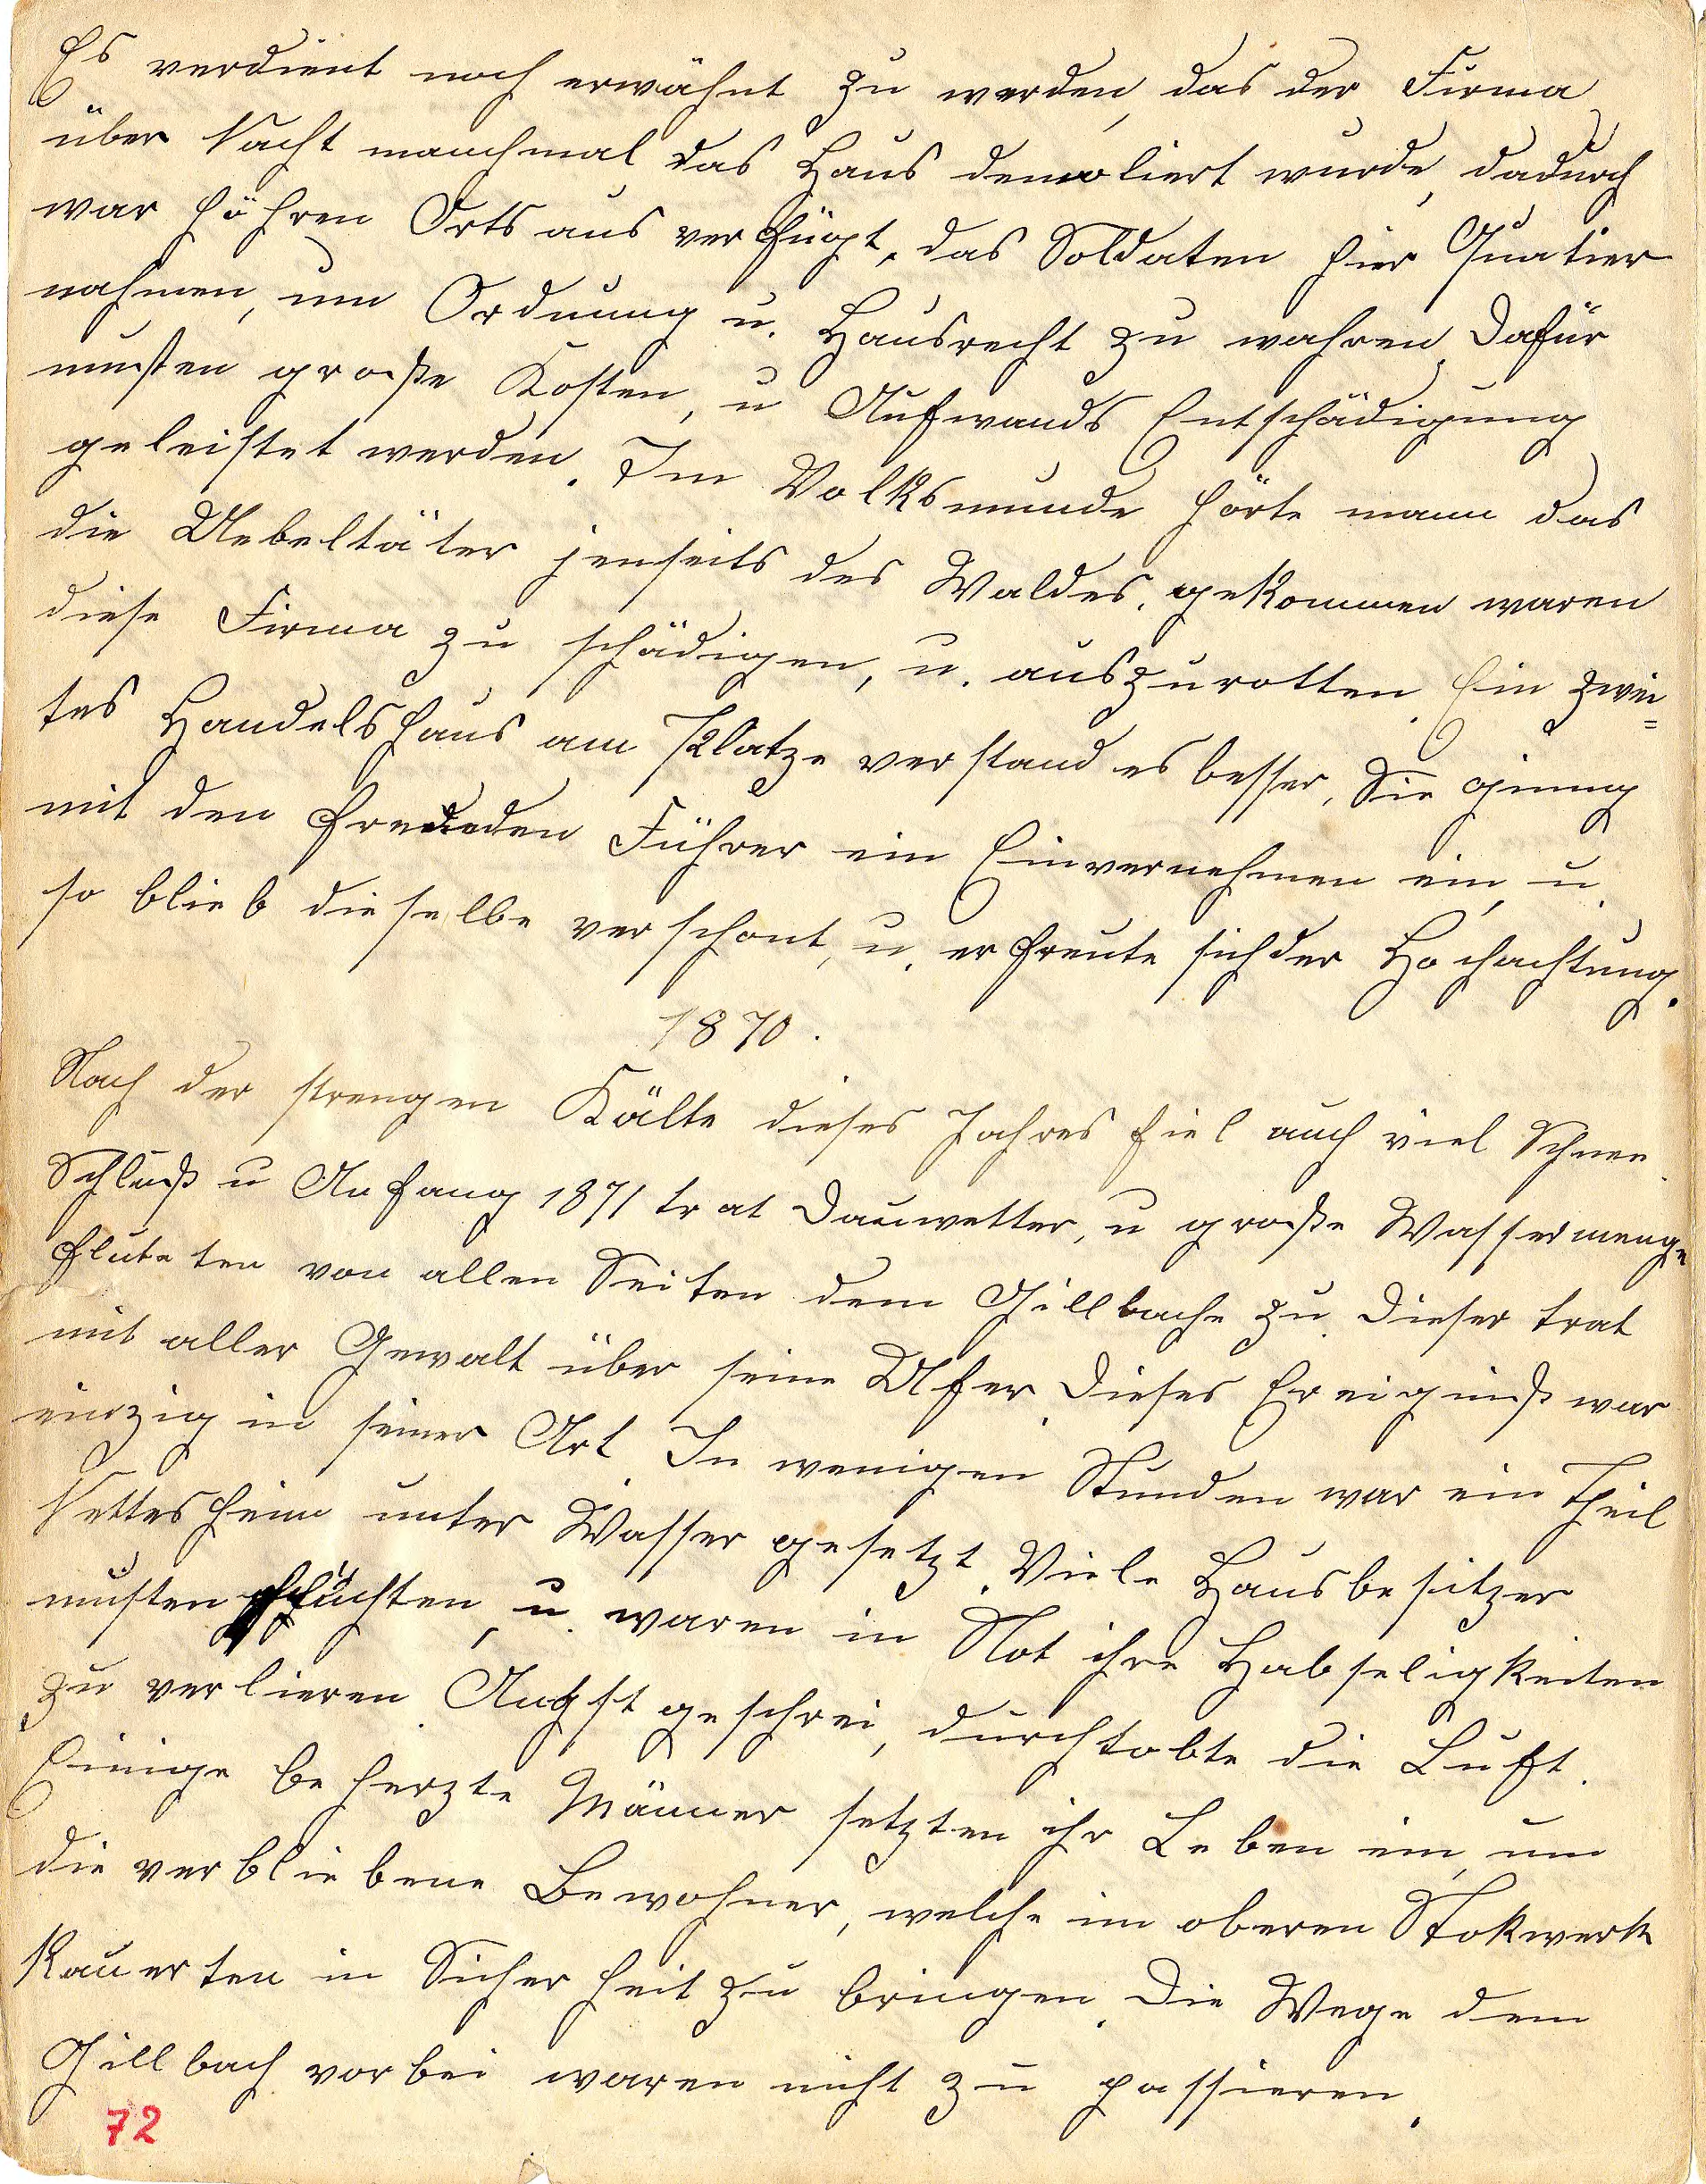 Es verdient noch erwähnt zu werden, das der Firma
über Nacht manchmal das Haus demoliert wurde, dadurch
war höhren Orts aus verfügt, das Soldaten hier Quatier
nahmen, um Ordnung u. Hausrecht zu wahren. Dafür
musten große Kosten, u Aufwands Entschädigung
geleistet werden. Im Volksmunde hörte mann das
die Uebeltäter jenseits des Waldes, gekommen waren
diese Firma zu schädigen, u. auszurotten. Ein zwei=
tes Handelshaus am Platze verstand es besser, Sie ginng
mit den Führer ein Einvernehmen ein, u.
so blieb dieselbe verschont, u. erfreute sich der Hochachtung.
1870.
Nach der strengen Kälte dieses Jahres fiel auch viel Schnee.
Schluß u Anfang 1871 trat Dauwetter, u große Wassermenge
fluteten von allen Seiten dem Gillbache zu. Dieser trat
mit aller Gewalt über seine Ufer. Dieses Ereigniß war
einzig in seiner Art. In wenigen Stunden war ein Theil
Nettesheim unter Wasser gesetzt. Viele Hausbesitzer
musten flüchten, u. waren in Not ihre Habseligkeiten
zu verlieren. Angstgeschrei, durchtobte die Luft.
Einige beherzte Männer setzten ihr Leben ein, um
die verbliebene Bewohner, welche im oberen Stokwerk
kauerten in Sicherheit zu bringen. Die Wege dem
Gillbach vorbei waren nicht zu passieren.
72